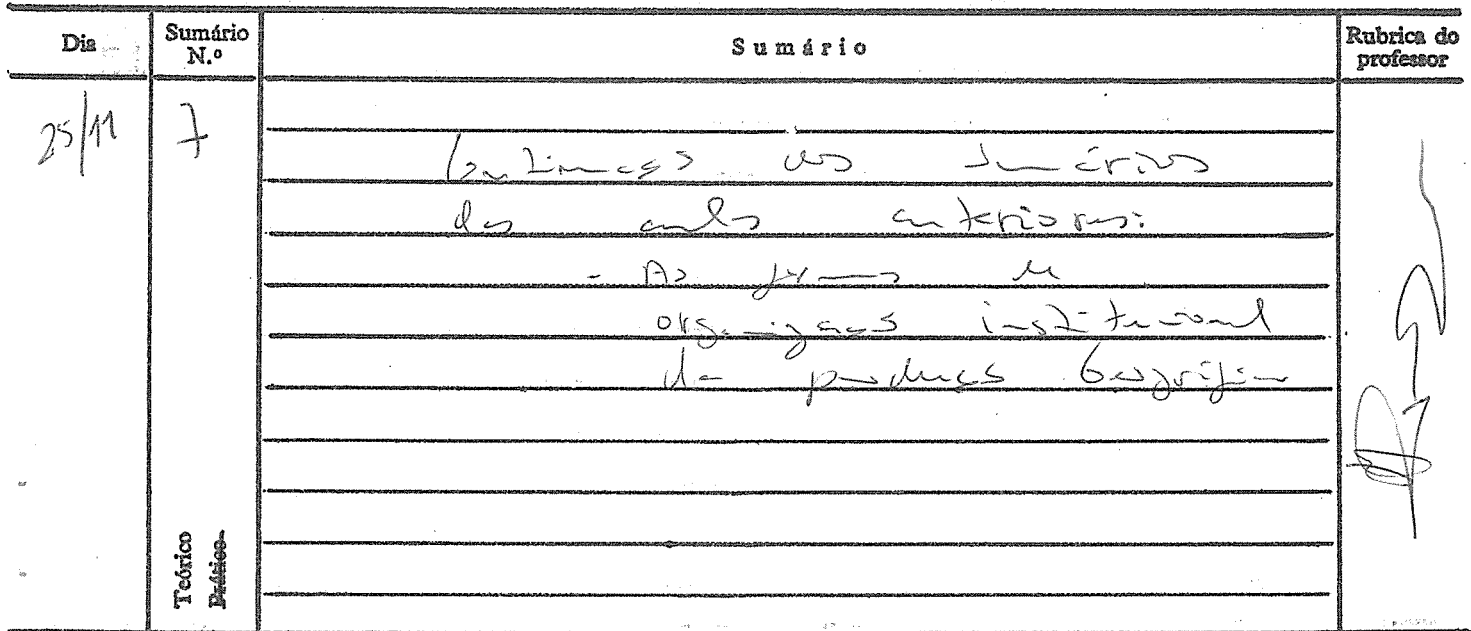 Dia
Sumário N.º
Sumário
Rubrica do professor
25/11
7
Continuação dos Sumários
das aulas anteriores:
- As formas de
organização institucional
da produção Geográfica
Teórico
Prático